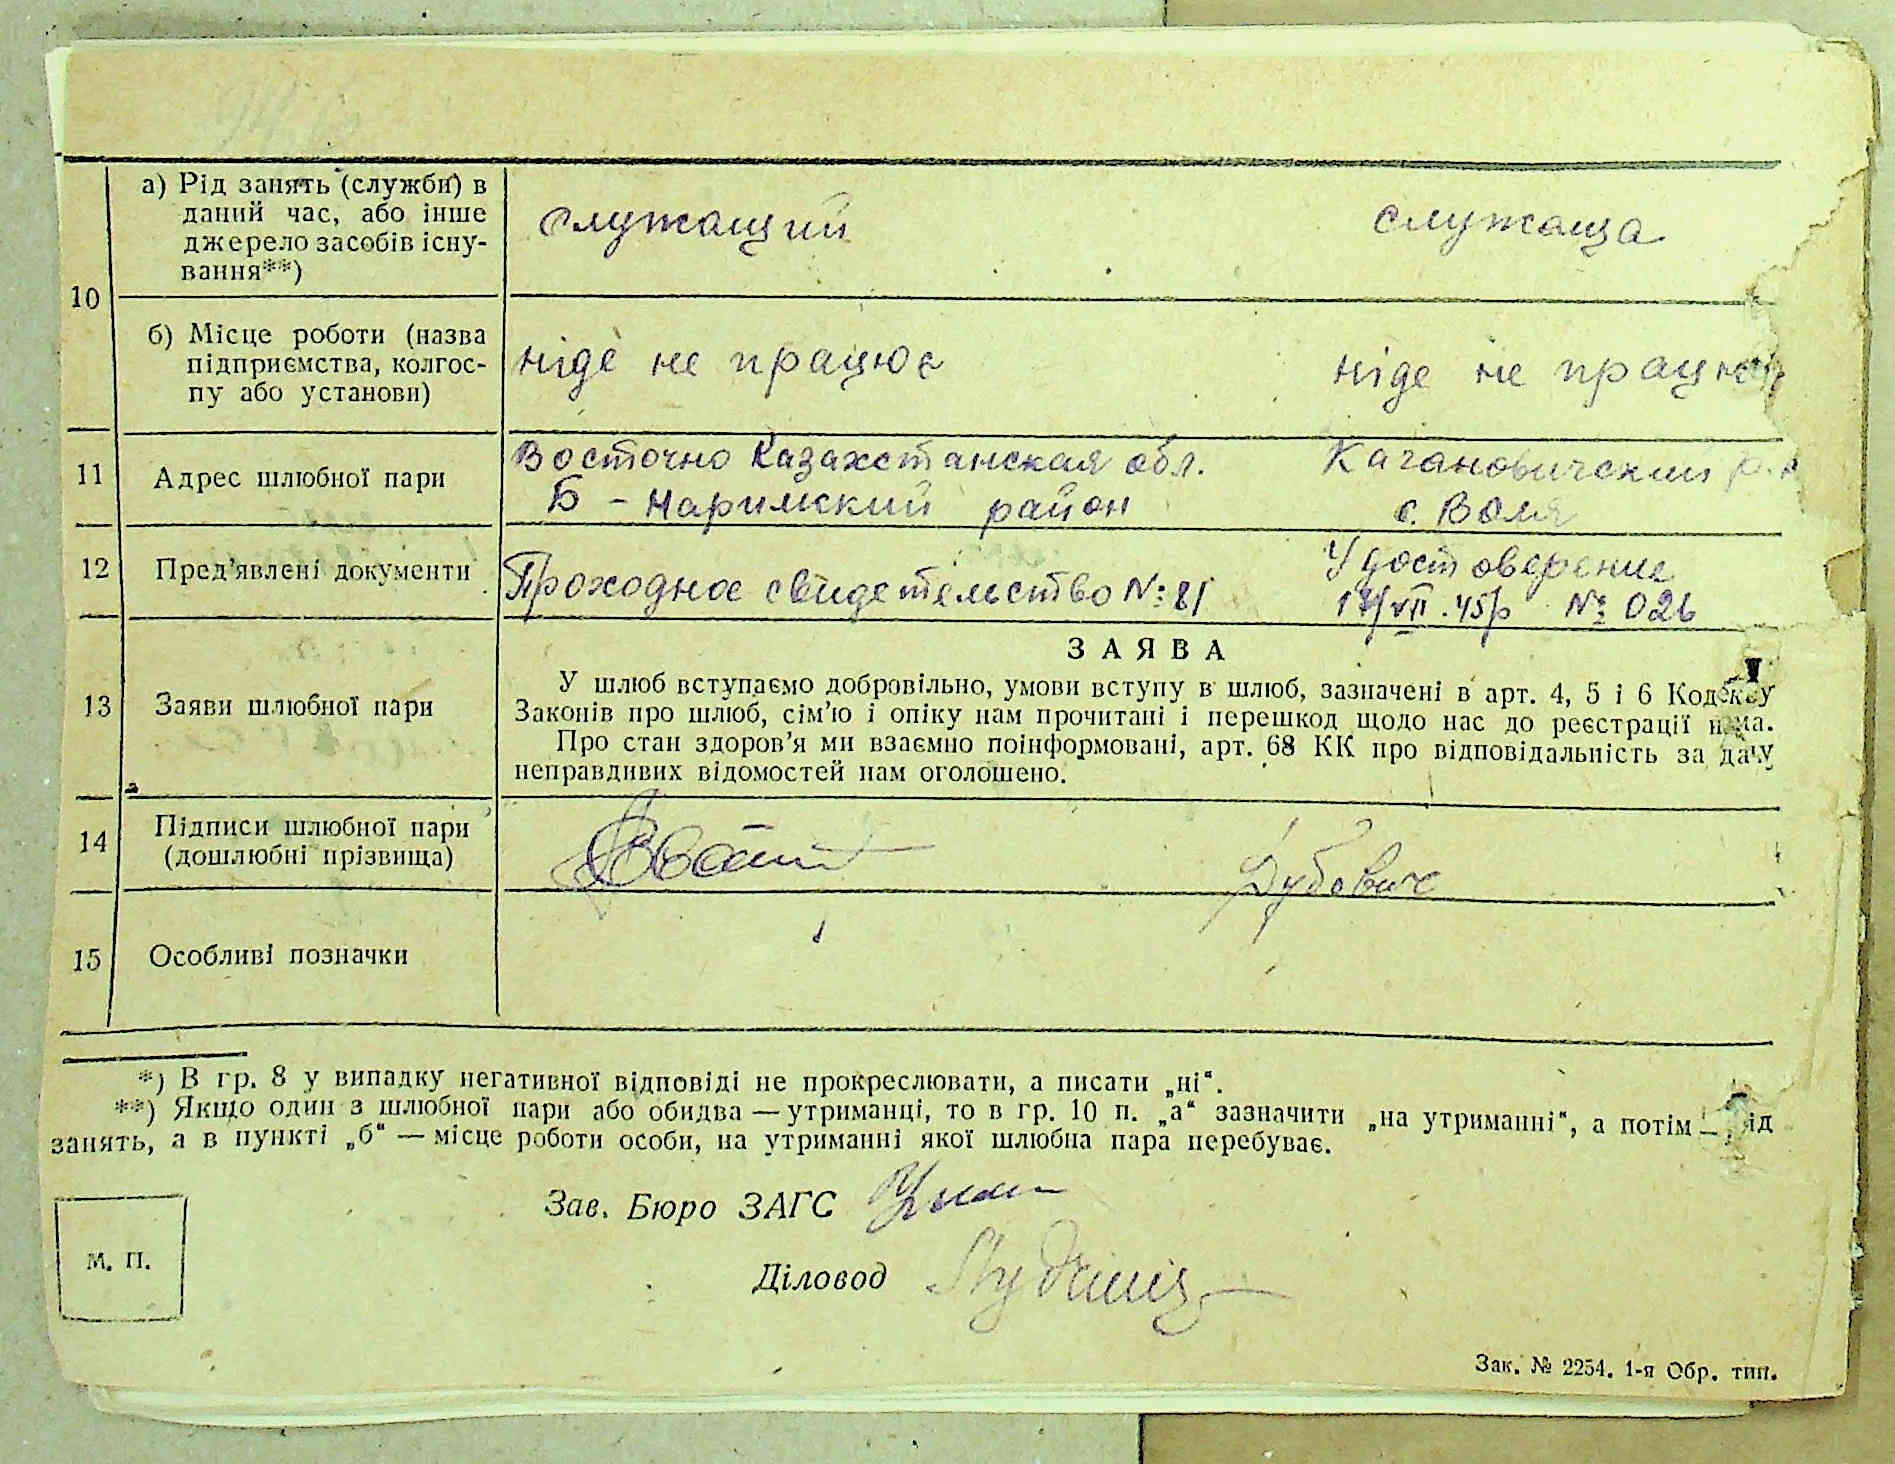 10
а) Рід занять (служби) в
даний час, або інше
джерело засобів існу-
вання**)
служащий
служаща
б) Місце роботи (назва
підприємства, колгос-
пу або установи)
ніде не працює
ніде не працює
11
Адрес шлюбної пари
Восточно Казахстанская обл.
Б - Наримский район
Кагановичский р.
с. Воля
12
Пред'явлені документи
Проходное свидетельство №: 81
Удостоверение
VII. 45р №: 026
13
Заяви шлюбної пари
ЗАЯВА
У шлюб вступаємо добровільно, умови вступу в шлюб, зазначені в арт. 4, 5 і 6 Кодексу
Законів про шлюб, сім'ю і опіку нам прочитані і перешкод щодо нас до реєстрації нема.
Про стан здоров'я ми взаємно поінформовані, арт. 68 КК про відповідальність за дачу
неправдивих відомостей нам оголошено.
14
Підписи шлюбної пари
(дошлюбні прізвища)
Дубович
15
Особливі позначки
*) В гр. 8 у випадку негативної відповіді не прокреслювати, а писати „ні“.
**) Якщо один з шлюбної пари або обидва — утриманці, то в гр. 10 п. „а“ зазначити „на утриманні“, а потім — рід
занять, а в пункті „б“ — місце роботи особи, на утриманні якої шлюбна пара перебуває.
Зав. Бюро ЗАГС
М. П.
Діловод
Зак. № 2254. 1-я Обр. тип.